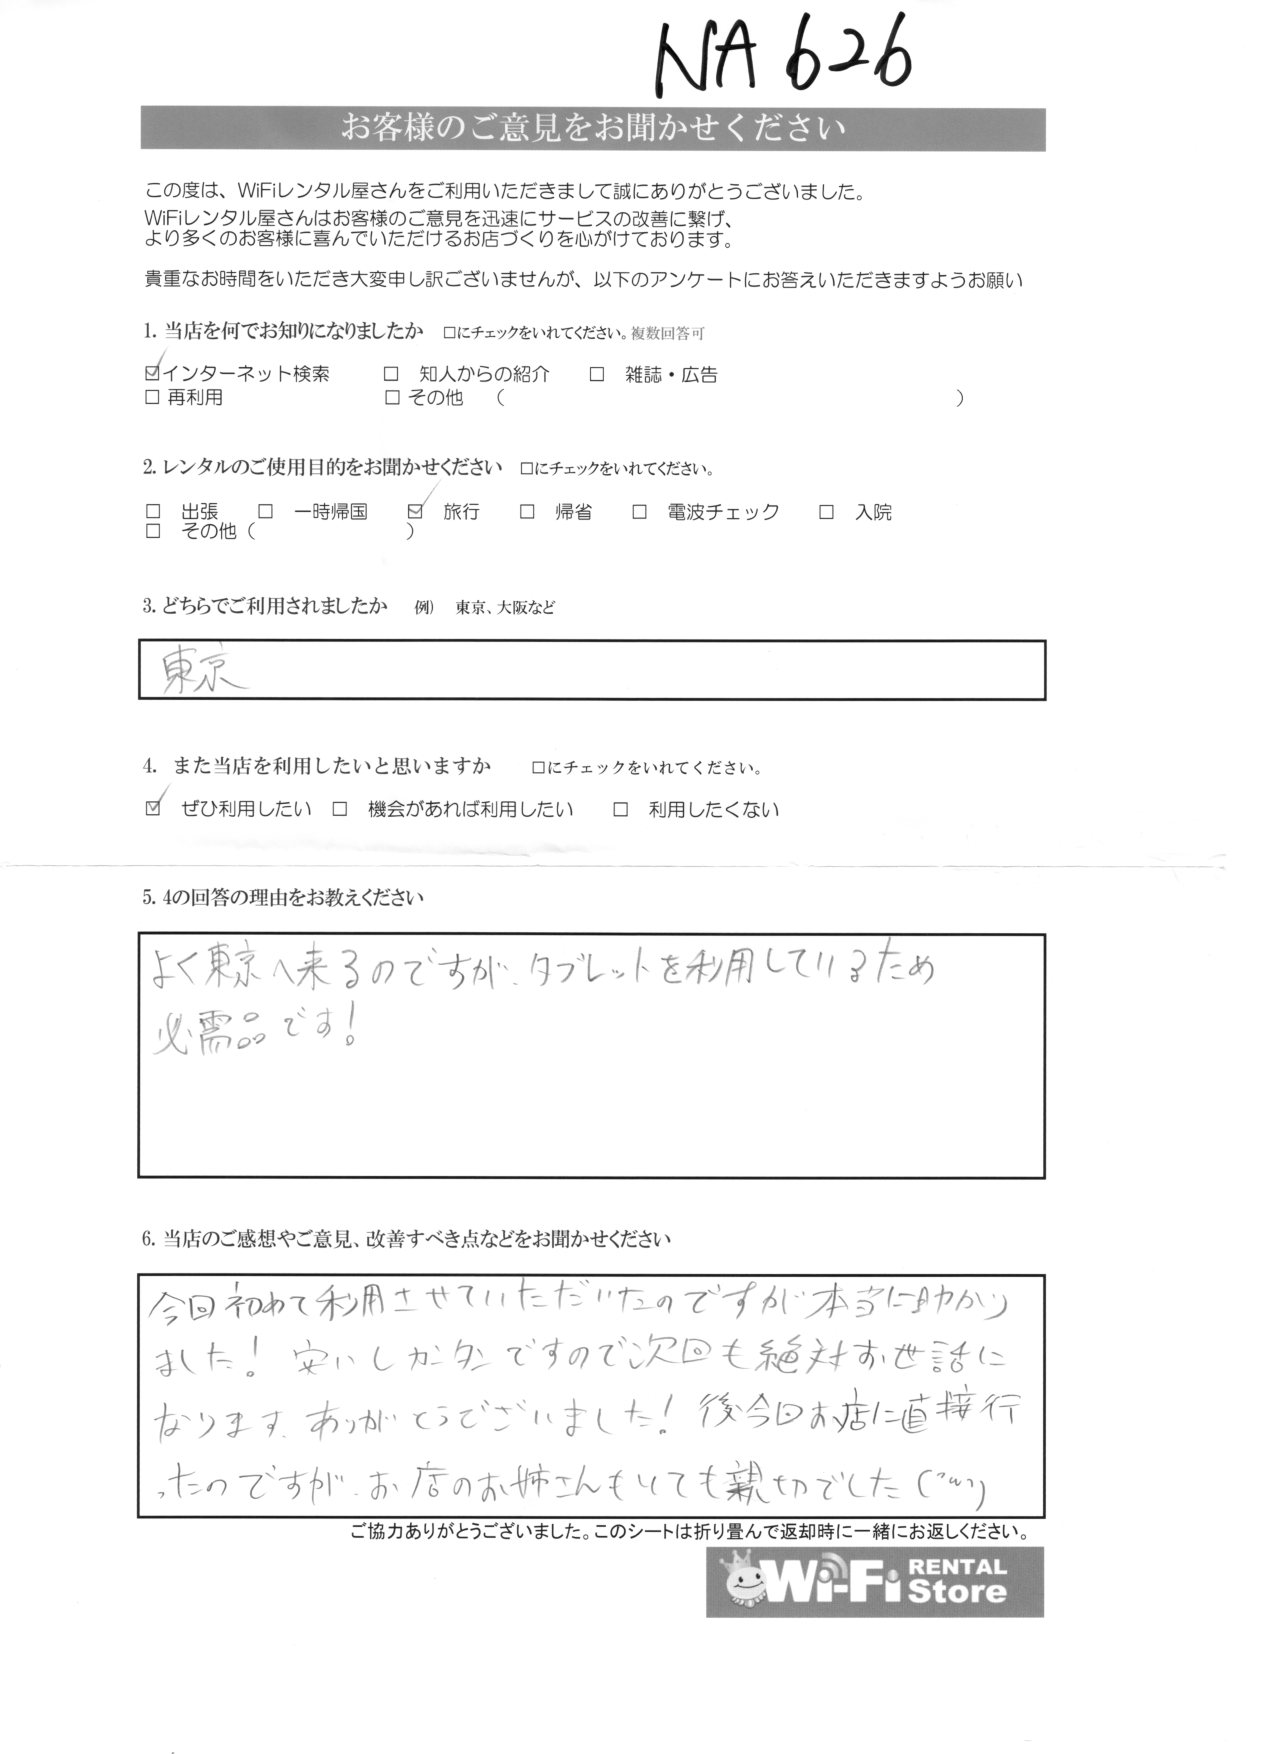 NA626
お客様のご意見をお聞かせください
この度は、WiFiレンタル屋さんをご利用いただきまして誠にありがとうございました。
WiFiレンタル屋さんはお客様のご意見を迅速にサービスの改善に繋げ、
より多くのお客様に喜んでいただけるお店づくりを心がけております。
貴重なお時間をいただき大変申し訳ございませんが、以下のアンケートにお答えいただきますようお願い
1. 当店を何でお知りになりましたか ☐にチェックをいれてください。複数回答可
☑インターネット検索 ☐ 知人からの紹介 ☐ 雑誌・広告
☐ 再利用 ☐ その他 ( )
2. レンタルのご使用目的をお聞かせください ☐にチェックをいれてください。
☐ 出張 ☐ 一時帰国 ☑ 旅行 ☐ 帰省 ☐ 電波チェック ☐ 入院
☐ その他 ( )
3. どちらでご利用されましたか 例) 東京、大阪など
東京
4. また当店を利用したいと思いますか ☐にチェックをいれてください。
☑ ぜひ利用したい ☐ 機会があれば利用したい ☐ 利用したくない
5. 4の回答の理由をお教えください
よく東京へ来るのですが、タブレットを利用しているため
必需品です!
6. 当店のご感想やご意見、改善すべき点などをお聞かせください
今回初めて利用させていただいたのですが本当に助かり
ました! 安いしカンタンですので次回も絶対お世話に
なります。ありがとうございました! 後今回お店に直接行
ったのですが、お店のお姉さんもとても親切でした(^ω^)
ご協力ありがとうございました。このシートは折り畳んで返却時に一緒にお返しください。
Wi-Fi RENTAL Store